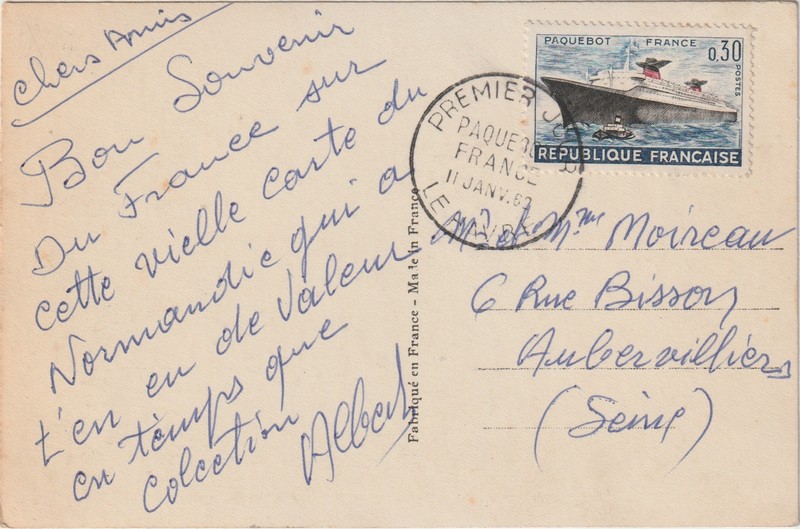 Chers Amis
Bon Souvenir
Du France sur
cette vielle carte du
Normandie qui a
t'en en de valeur
en tèmps que
colection
Albert
Fabriqué en France - Made in France
PAQUEBOT FRANCE
0,30
POSTES
REPUBLIQUE FRANÇAISE
PREMIER JOUR
PAQUEBOT
FRANCE
11 JANV. 62
LE HAVRE
Mr et Mme Moireau
6 Rue Bisson
Aubervilliers
(Seine)